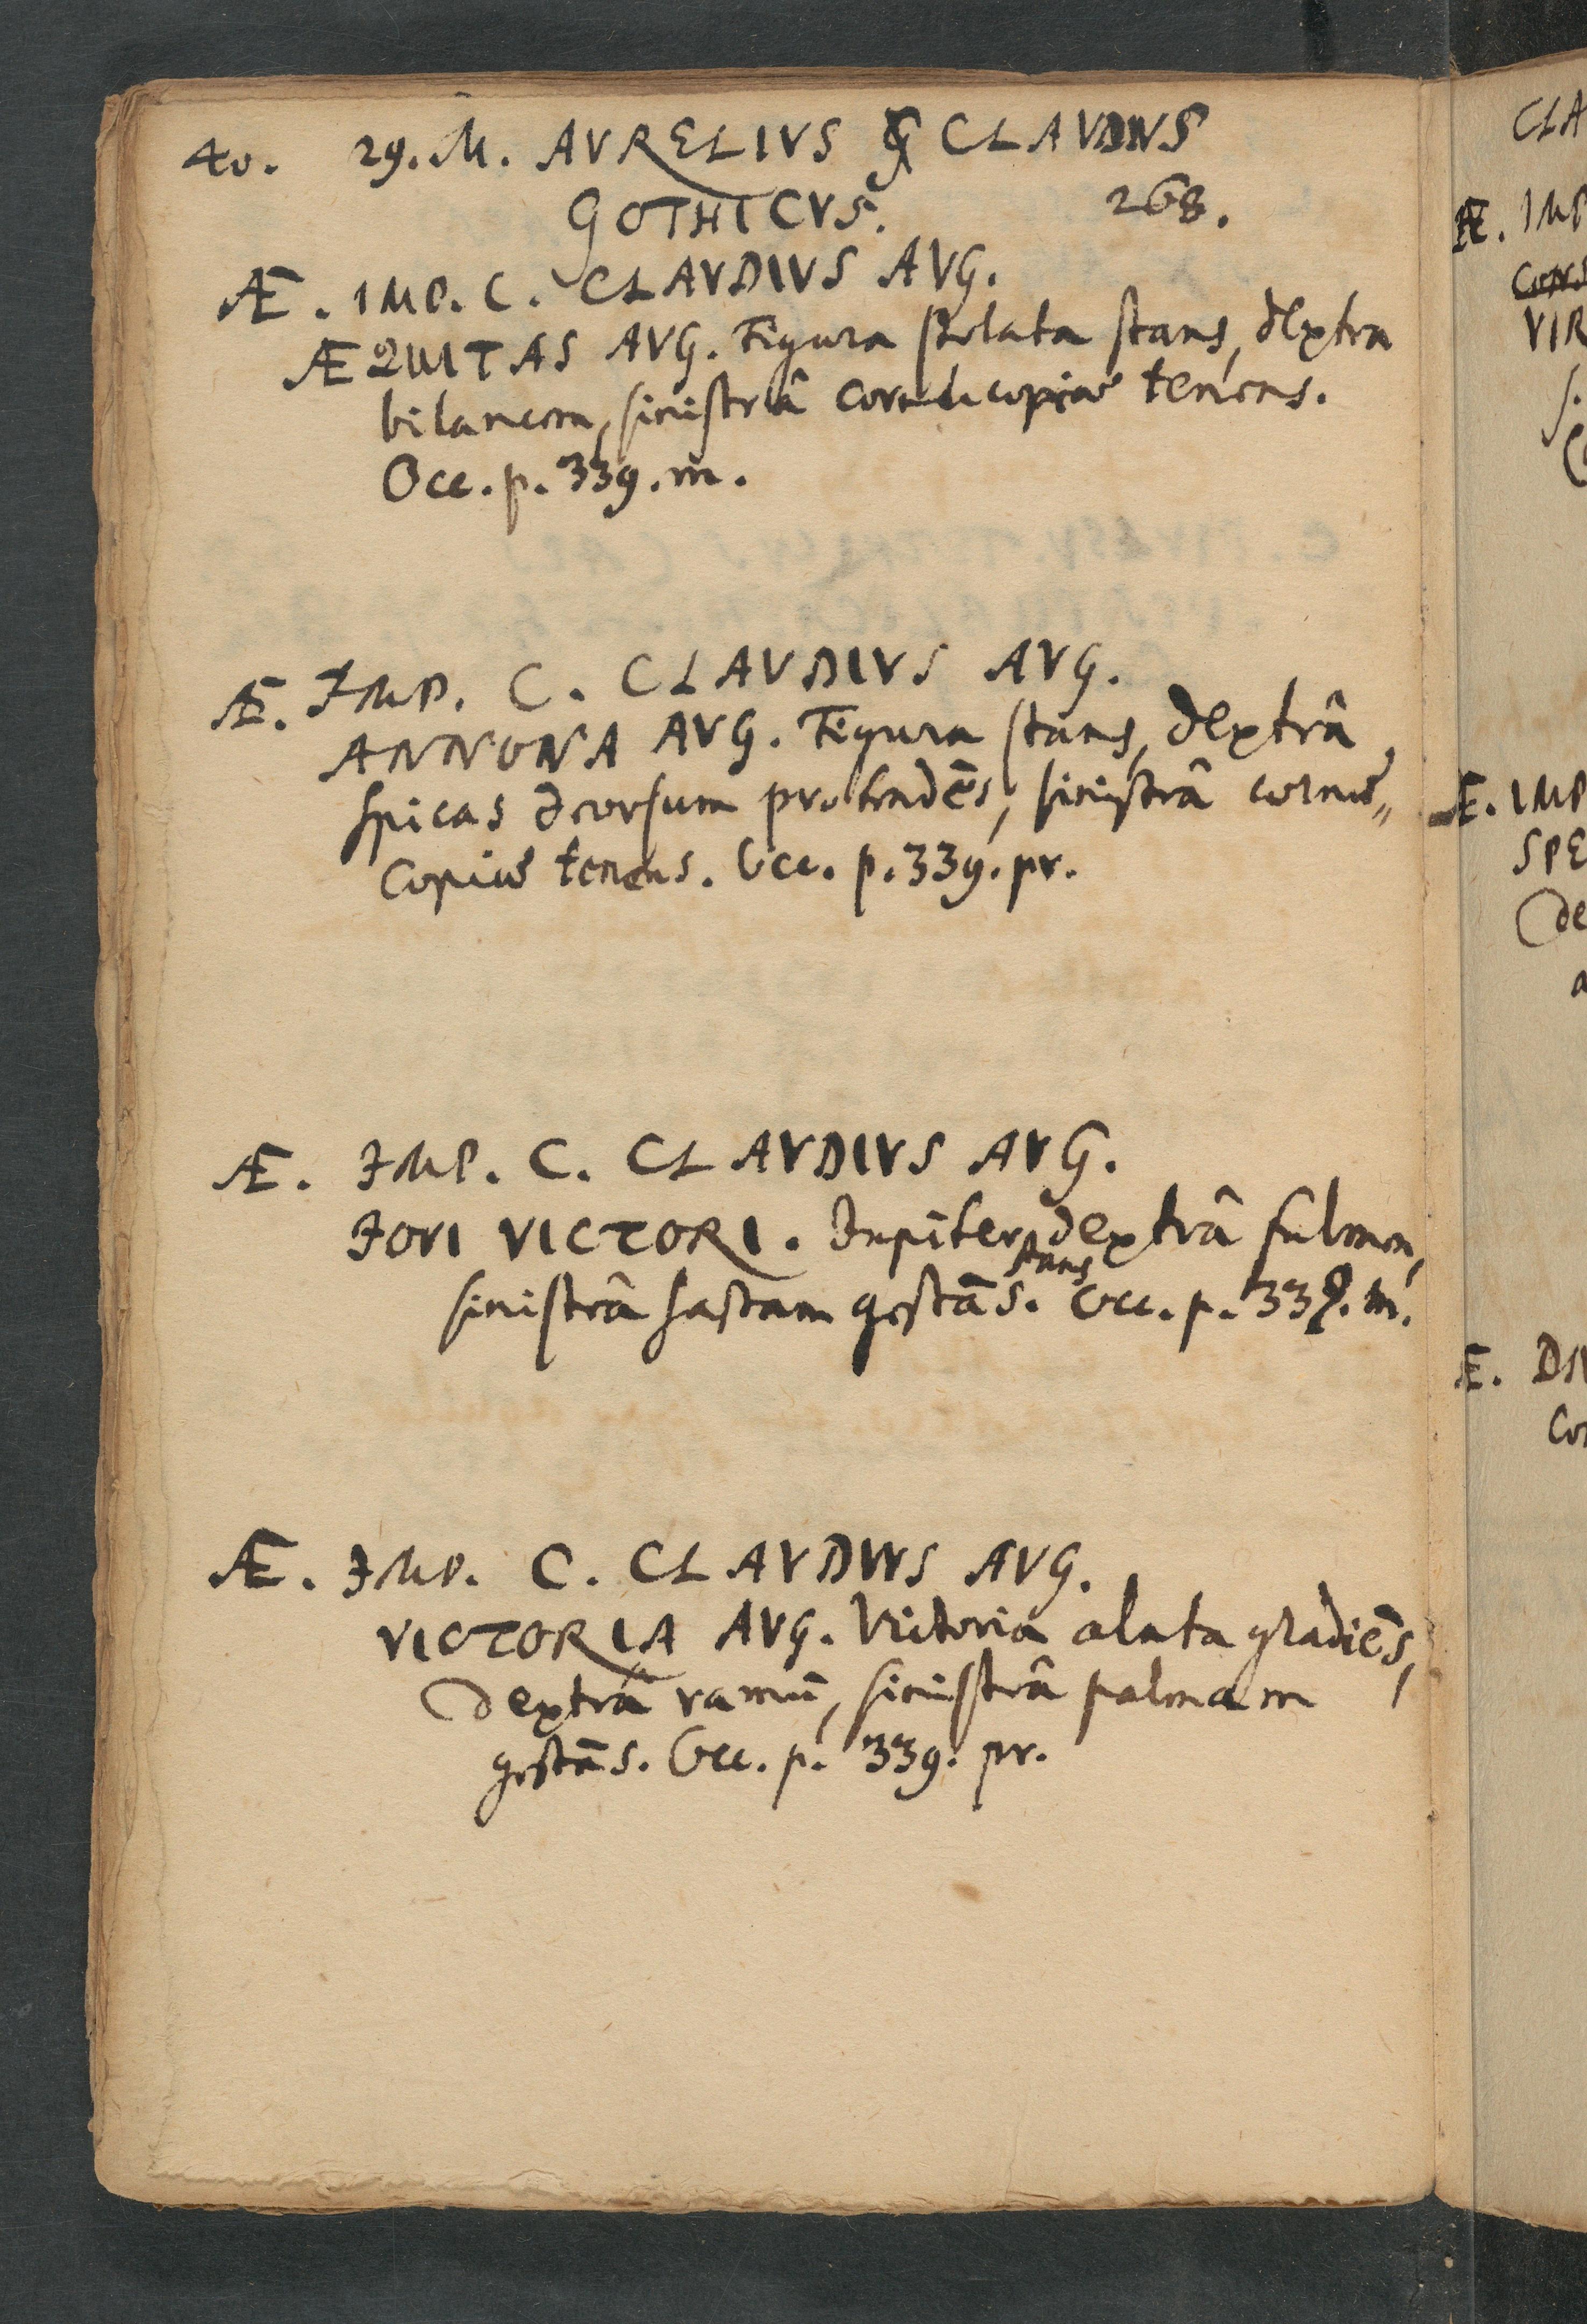 40. 29. M. AVRELIVS CLAVDIVS
GOTHICVS. 268.
Æ. IMP. C. CLAVDIVS AVG.
ÆQUITAS AVG. Figura stolata stans, dextra
bilancem, sinistrâ cornucopiæ tenens.
Occ. p. 339. m.
Æ. IMP. C. CLAVDIVS AVG.
ANNONA AVG. Figura stans, dextrâ
spicas deorsum protendēs, sinistrâ cornu„
copiæ tenens. Occ. p. 339. pr.
Æ. IMP. C. CLAVDIVS AVG.
IOVI VICTORI. Jupiter dextrâ fulmen,
stans
sinistrâ hastam gestās. Occ. p. 339. m.
Æ. IMP. C. CLAVDIVS AVG.
VICTORIA AVG. Victoria alata gradiēs,
dextrâ ramū, sinistrâ palmam
gestās. Occ. p. 339. pr.
CLA
Æ. IMP
CONS
VIR
s.
Æ. IMP
SPE
de
a
Æ. DI
Co